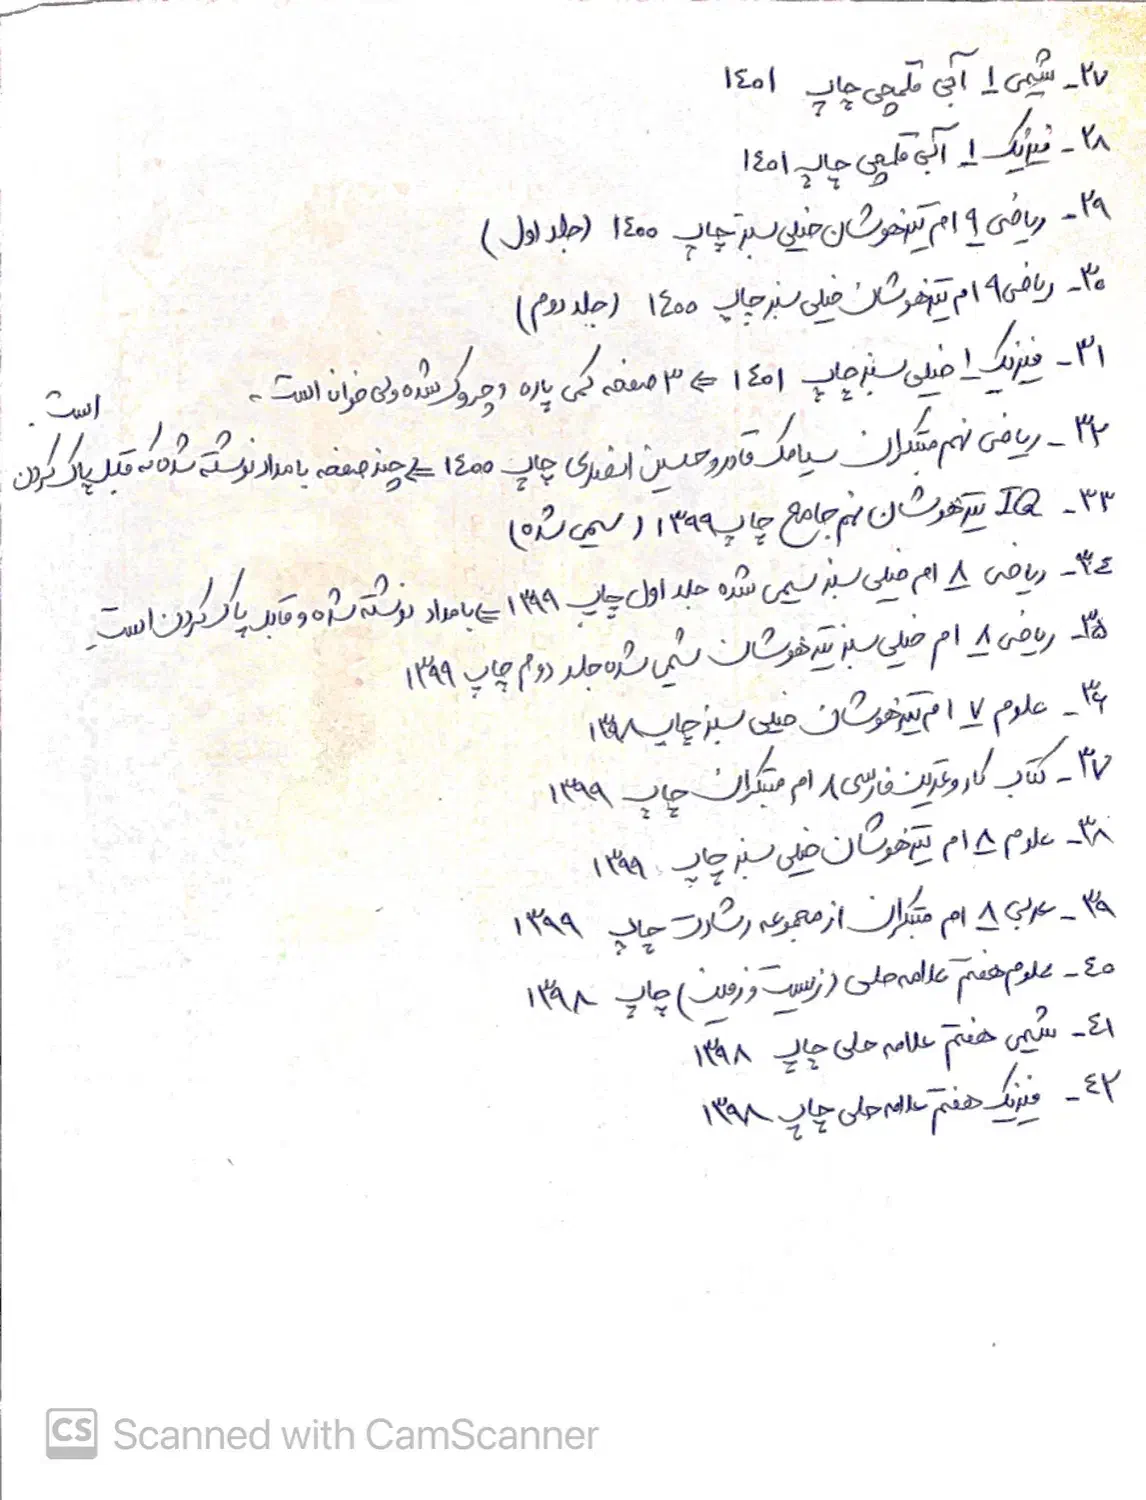 ۲۷- شیمی ۱ آبی قلمچی چاپ ۱۴۰۱
۲۸- فیزیک ۱ آبی قلمچی چاپ ۱۴۰۱
۲۹- ریاضی ۹ ام تیزهوشان خیلی سبز چاپ ۱۴۰۰ (جلد اول)
۳۰- ریاضی ۹ ام تیزهوشان خیلی سبز چاپ ۱۴۰۰ (جلد دوم)
۳۱- فیزیک ۱ خیلی سبز چاپ ۱۴۰۱ ⇐ ۳ صفحه کمی پاره و چروک شده ولی خوانا است.
۳۲- ریاضی نهم مبتکران سیامک قادر و حسین اسفندی چاپ ۱۴۰۰ ⇐ چند صفحه با مداد نوشته شده که قبل پاک کردن است.
۳۳- IQ تیزهوشان نهم جامع چاپ ۱۳۹۹ (سیمی شده)
۳۴- ریاضی ۸ ام خیلی سبز سیمی شده جلد اول چاپ ۱۳۹۹ ⇐ با مداد نوشته شده و قابل پاک کردن است.
۳۵- ریاضی ۸ ام خیلی سبز تیزهوشان سیمی شده جلد دوم چاپ ۱۳۹۹
۳۶- علوم ۷ ام تیزهوشان خیلی سبز چاپ ۱۳۹۸
۳۷- کتاب کار و تمرین فارسی ۸ ام مبتکران چاپ ۱۳۹۹
۳۸- علوم ۸ ام تیزهوشان خیلی سبز چاپ ۱۳۹۹
۳۹- عربی ۸ ام مبتکران از مجموعه رشادت چاپ ۱۳۹۹
۴۰- علوم هفتم علامه حلی (زیست و زمین) چاپ ۱۳۹۸
۴۱- شیمی هفتم علامه حلی چاپ ۱۳۹۸
۴۲- فیزیک هفتم علامه حلی چاپ ۱۳۹۸
CS Scanned with CamScanner